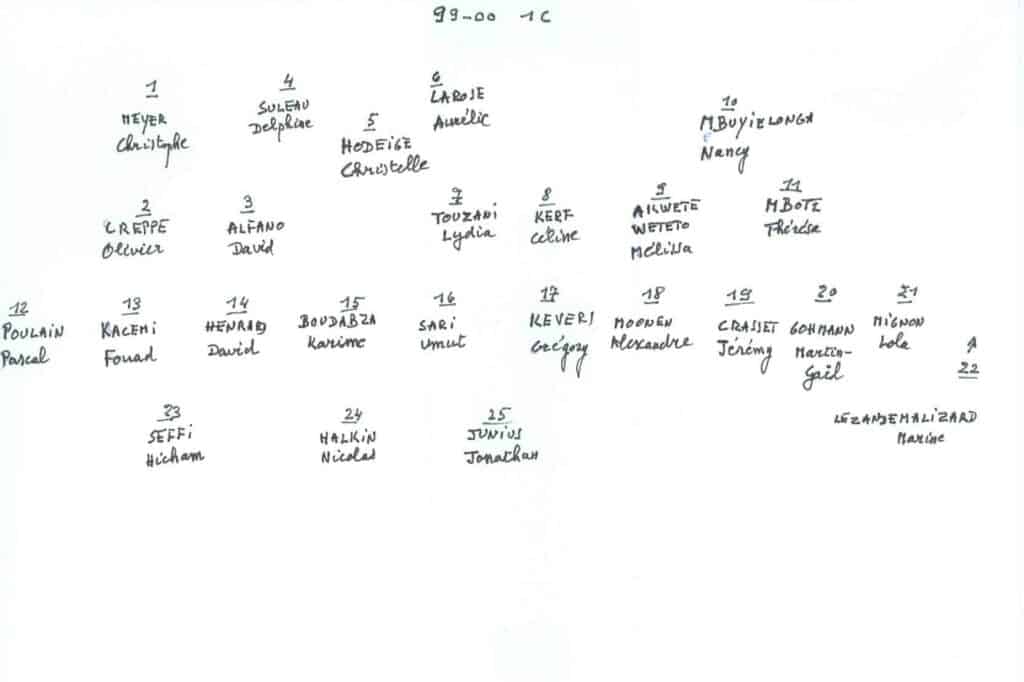 99-00 1C
1
MEYER
Christophe
4
SULEAU
Delphine
5
HODEIGE
Christelle
6
LAROSE
Aurélie
10
MBUYIELONGA
Nancy
2
CREPPE
Olivier
3
ALFANO
David
7
TOUZANI
Lydia
8
KERF
Céline
9
AKWETE
WETETO
Mélissa
11
MBOTE
Thérésa
12
POULAIN
Pascal
13
KACEMI
Fouad
14
HENRARD
David
15
BOUDABZA
Karime
16
SARI
Umut
17
KEVERS
Grégory
18
MOONEN
Alexandre
19
CRASSET
Jérémy
20
GOHMANN
Martin-
Gail
21
MIGNON
Lola
22
LEZANDEMALIZARD
Marine
23
SEFFI
Hicham
24
HALKIN
Nicolas
25
JUNIUS
Jonathan